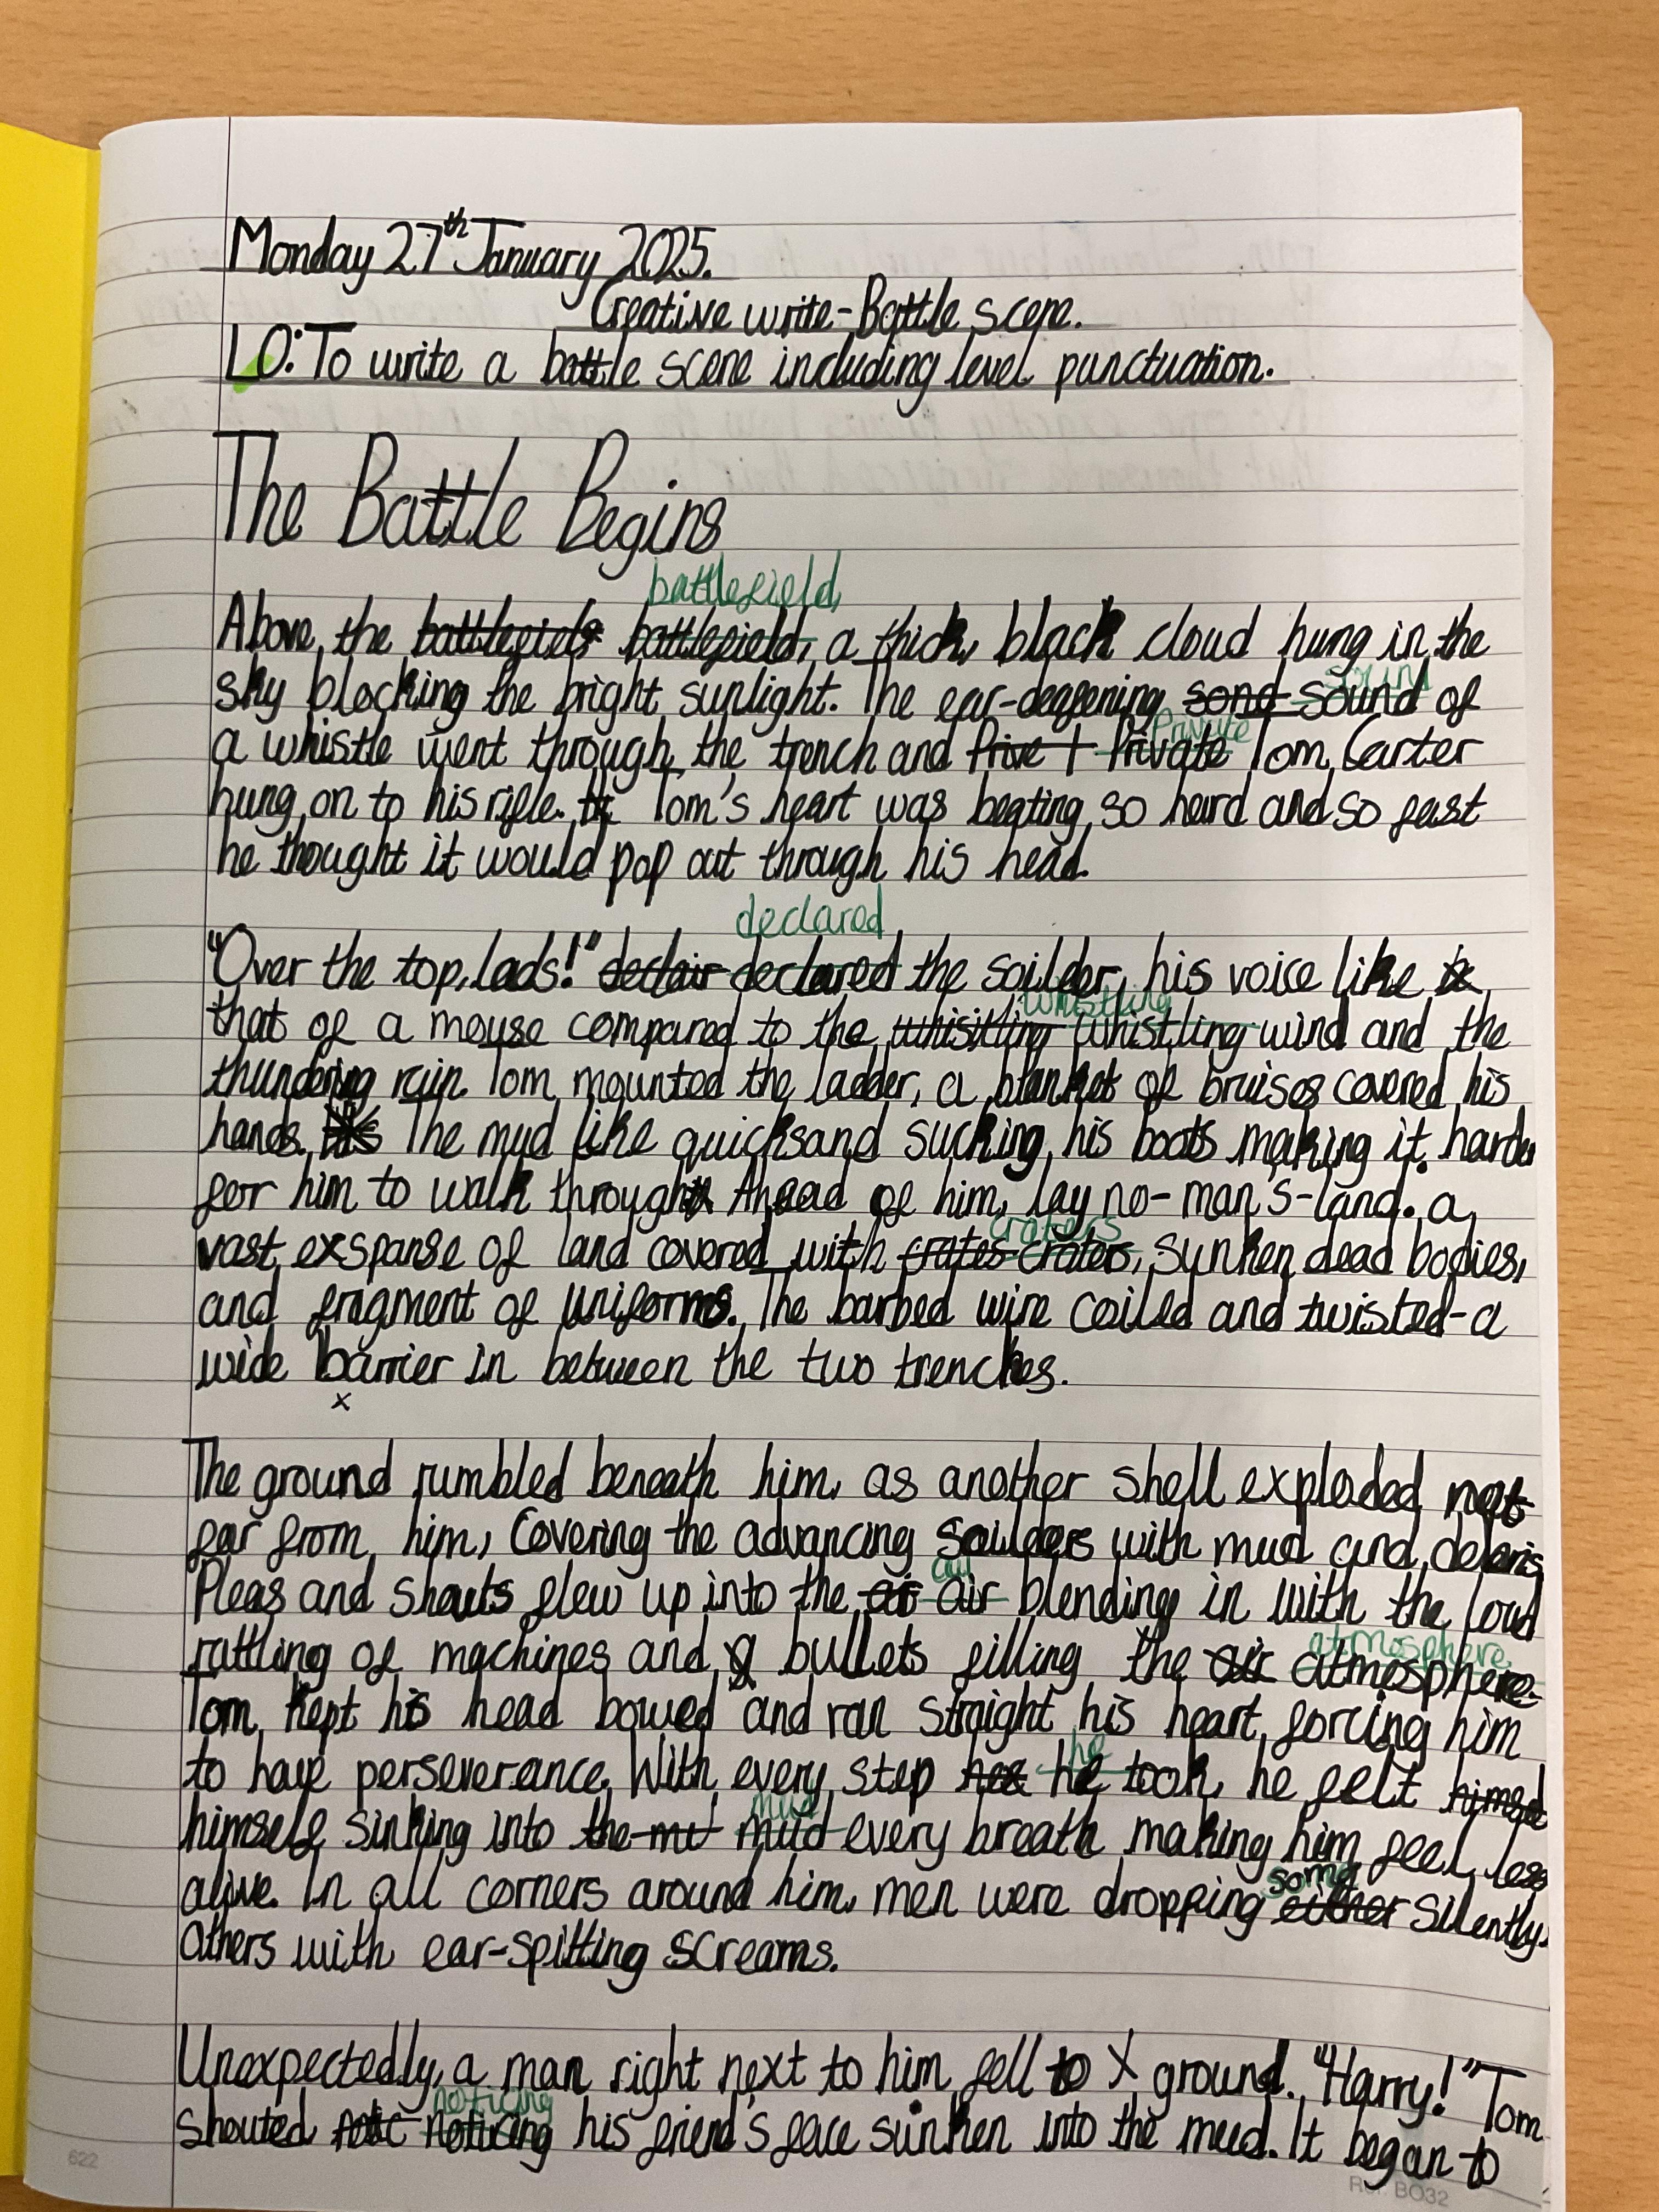 Monday 27th January 2025.
Creative write-Battle scene.
LO: To write a battle scene including level punctuation.
The Battle Begins
battlefield,
Above the battlefiels battlefield, a thick, black cloud hung in the
sound
sky blocking the bright sunlight. The ear-deafening sond sound of
Private
a whistle went through the trench and Prive T Private Tom Carter
hung on to his rifle. Tom's heart was beating so hard and so fast
he thought it would pop out through his head.
declared
"Over the top, lads!" declair declared the soilder, his voice like
whistling
that of a mouse compared to the whisitling whistling wind and the
thundering rain. Tom mounted the ladder, a blanket of bruises covered his
hands. The mud like quicksand sucking his boots making it harder
for him to walk through. Ahead of him, lay no-man's-land. a
craters
vast exspanse of land covered with crates craters, sunken dead bodies,
and fragment of uniforms. The barbed wire coiled and twisted-a
wide barrier in between the two trenches.
x
The ground rumbled beneath him, as another shell exploded not
far from him, Covering the advancing soilders with mud and debris
air
Pleas and shouts flew up into the air air blending in with the loud
atmosphere
rattling of machines and bullets filling the air atmosphere.
Tom kept his head bowed and ran straight his heart forcing him
he
to have perseverance. With every step he took, he felt himself
mud
himself sinking into the mu mud every breath making him feel less
some
alive. In all corners around him, men were dropping either silently,
Others with ear-spitting screams.
Unexpectedly, a man right next to him fell to X ground. "Harry!" Tom
noticing
shouted notic noticing his friend's face sunken into the mud. It began to
622
Ref: BO32